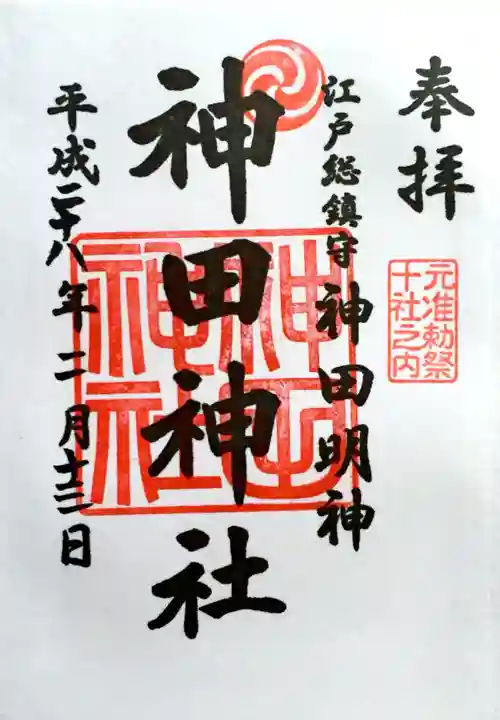 奉拝
元准勅祭
十社之内
江戸総鎮守 神田明神
神田神社
神田
神社
平成二十八年二月十三日